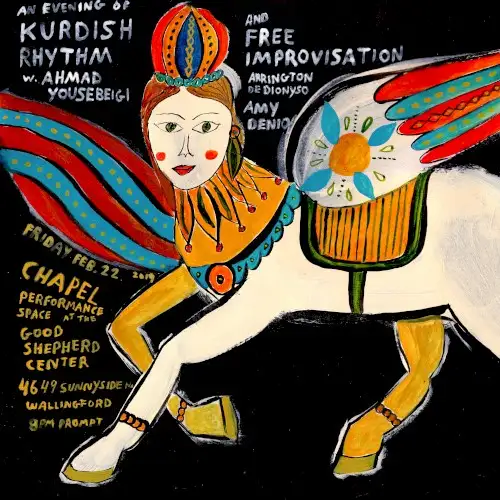 AN EVENING OF
KURDISH
RHYTHM
W. AHMAD
YOUSEBEIGI
AND
FREE
IMPROVISATION
ARRINGTON
DE DIONYSO
AMY
DENIO
FRIDAY FEB. 22 2019
CHAPEL
PERFORMANCE
SPACE AT THE
GOOD
SHEPHERD
CENTER
4649 SUNNYSIDE N.
WALLINGFORD
8PM PROMPT